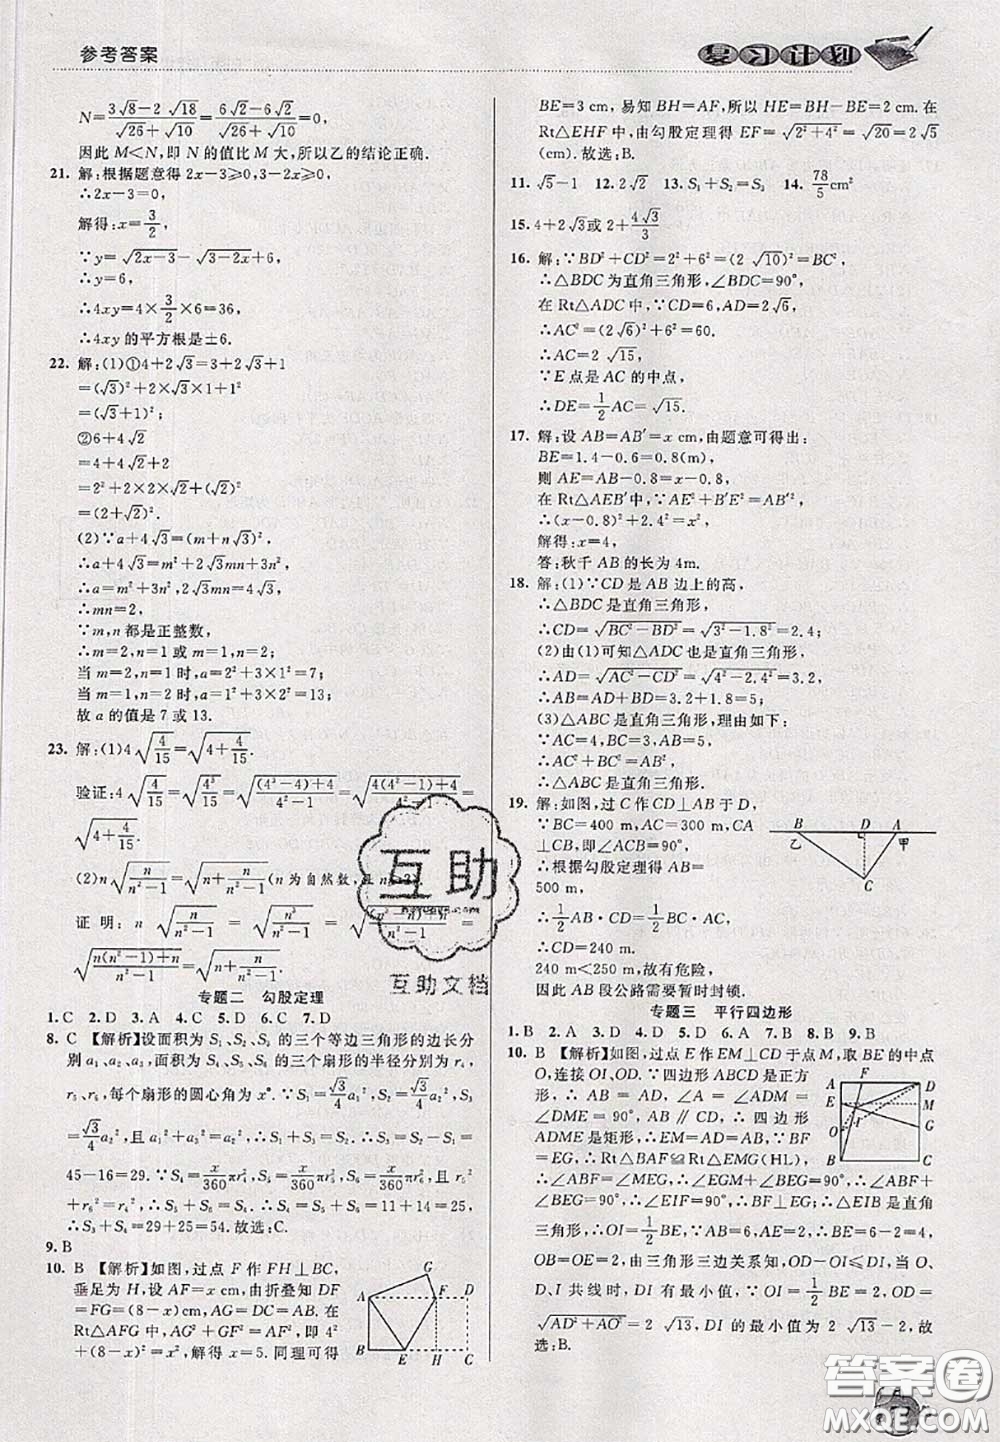 参考答案
复习计划
N=\frac{3\sqrt{8}-2\sqrt{18}}{\sqrt{26}+\sqrt{10}}=\frac{6\sqrt{2}-6\sqrt{2}}{\sqrt{26}+\sqrt{10}}=0,
因此 M<N,即 N 的值比 M 大,所以乙的结论正确.
21. 解:根据题意得 2x-3⩾0,3-2x⩾0,
∴2x-3=0,
解得:x=\frac{3}{2},
∵y=\sqrt{2x-3}-\sqrt{3-2x}+6,
∴y=6,
∴4xy=4×\frac{3}{2}×6=36,
∴4xy 的平方根是±6.
22. 解:(1)①4+2√3=3+2√3+1
=(√3)²+2×√3×1+1²
=(√3+1)²;
②6+4√2
=4+4√2+2
=2²+2×2×√2+(√2)²
=(2+√2)².
(2)∵a+4√3=(m+n√3)²,
∴a+4√3=m²+2√3mn+3n²,
∴a=m²+3n²,2√3mn=4√3,
∴mn=2,
∵m,n都是正整数,
∴m=2,n=1 或 m=1,n=2;
当 m=2,n=1 时,a=2²+3×1²=7;
当 m=1,n=2 时,a=1²+3×2²=13.
故 a 的值是 7 或 13.
23. 解:(1)4\sqrt{\frac{4}{15}}=\sqrt{4+\frac{4}{15}}.
验证:4\sqrt{\frac{4}{15}}=\sqrt{\frac{4³}{15}}=\sqrt{\frac{(4³-4)+4}{4²-1}}=\sqrt{\frac{4(4²-1)+4}{4²-1}}=
\sqrt{4+\frac{4}{15}}.
(2)n\sqrt{\frac{n}{n²-1}}=\sqrt{n+\frac{n}{n²-1}}(n 为自然数,且
证明:n\sqrt{\frac{n}{n²-1}}=\sqrt{\frac{n³}{n²-1}}=
\sqrt{\frac{n(n²-1)+n}{n²-1}}=\sqrt{n+\frac{n}{n²-1}}.
互助
互助文档
专题二 勾股定理
1. C 2. D 3. C 4. C 5. D 6. C 7. D
8. C 【解析】设面积为 S₁、S₂、S₃ 的三个等边三角形的边长分
别 a₁、a₂、a₃,面积为 S₄、S₅、S₆ 的三个扇形的半径分别为 r₄、
r₅、r₆,每个扇形的圆心角为 x°. ∵S₁=\frac{√3}{4}a₁²,S₂=\frac{√3}{4}a₂²,S₃
=\frac{√3}{4}a₃²,且 a₁²+a₂²=a₃²,∴S₁+S₂=S₃. ∴S₃=S₁+S₂=
45-16=29. ∵S₄=\frac{x}{360}πr₄²,S₅=\frac{x}{360}πr₅²,S₆=\frac{x}{360}πr₆²,且 r₄²
+r₅²=r₆²,∴S₄+S₅=S₆. ∴S₆=S₄+S₅=11+14=25,
∴S₃+S₆=29+25=54.故选:C.
9. B
10. B 【解析】如图,过点 F 作 FH⊥BC,
垂足为 H,设AF=x cm,由折叠知 DF
=FG=(8-x)cm,AG=DC=AB.在
Rt△AFG 中,AG²+GF²=AF²,即 4²
+(8-x)²=x²,解得 x=5.同理可得
G
A F D
B E H C
BE=3 cm,易知 BH=AF,所以 HE=BH-BE=2 cm.在
Rt△EHF 中,由勾股定理得 EF=\sqrt{2²+4²}=\sqrt{20}=2√5
(cm).故选:B.
11. √5-1 12. 2√2 13. S₁+S₂=S₃ 14. \frac{78}{5}cm²
15. 4+2√3或 2+\frac{4√3}{3}
16. 解:∵BD²+CD²=2²+6²=(2\sqrt{10})²=BC²,
∴△BDC为直角三角形,∠BDC=90°,
在 Rt△ADC 中,∵CD=6,AD=2√6,
∴AC²=(2√6)²+6²=60.
∴AC=2\sqrt{15},
∵E 点是 AC 的中点,
∴DE=\frac{1}{2}AC=\sqrt{15}.
17. 解:设 AB=AB′=x cm,由题意可得出:
BE=1.4-0.6=0.8(m),
则 AE=AB-0.8=x-0.8,
在 Rt△AEB′中,∵AE²+B′E²=AB′²,
∴(x-0.8)²+2.4²=x²,
解得:x=4,
答:秋千 AB 的长为 4m.
18. 解:(1)∵CD 是 AB 边上的高,
∴△BDC 是直角三角形,
∴CD=\sqrt{BC²-BD²}=\sqrt{3²-1.8²}=2.4;
(2)由(1)可知△ADC 也是直角三角形,
∴AD=\sqrt{AC²-CD²}=\sqrt{4²-2.4²}=3.2,
∴AB=AD+BD=3.2+1.8=5;
(3)△ABC 是直角三角形,理由如下:
∵AC=4,BC=3,AB=5,
∴AC²+BC²=AB²,
∴△ABC 是直角三角形.
19. 解:如图,过 C 作 CD⊥AB 于 D,
∵BC=400 m,AC=300 m,CA
⊥CB,即∠ACB=90°,
∴根据勾股定理得 AB=
500 m,
∴\frac{1}{2}AB·CD=\frac{1}{2}BC·AC.
∴CD=240 m.
240 m<250 m,故有危险,
因此 AB 段公路需要暂时封锁.
B D A
乙 甲
C
专题三 平行四边形
1. B 2. A 3. A 4. A 5. D 6. D 7. B 8. B 9. B
10. B 【解析】如图,过点 E 作 EM⊥CD 于点 M,取 BE 的中点
O,连接 OI、OD. ∵四边形 ABCD 是正方
形,∴ AB=AD,∠A=∠ADM=
∠DME=90°,AB∥CD,∴四边形
ADME 是矩形,∴EM=AD=AB. ∵BF
=EG,∴Rt△BAF≌Rt△EMG(HL),
∴∠ABF=∠MEG. ∵∠MEG+∠BEG=90°,∴∠ABF+
∠BEG=90°,∴∠EIF=90°,∴BF⊥EG. ∴△EIB 是直角
三角形,∴OI=\frac{1}{2}BE. ∵AB=6,AE=2,∴BE=6-2=4,
OB=OE=2,由三角形三边关系知,OD-OI⩽DI,∴当O、
D、I 共线时,DI 有最小值,∵IO=\frac{1}{2}BE=2,∴OD=
\sqrt{AD²+AO²}=2\sqrt{13},DI 的最小值为 2\sqrt{13}-2,故
选:B.
A F D
E M
O I G
B C
答案圈
MXQE.COM